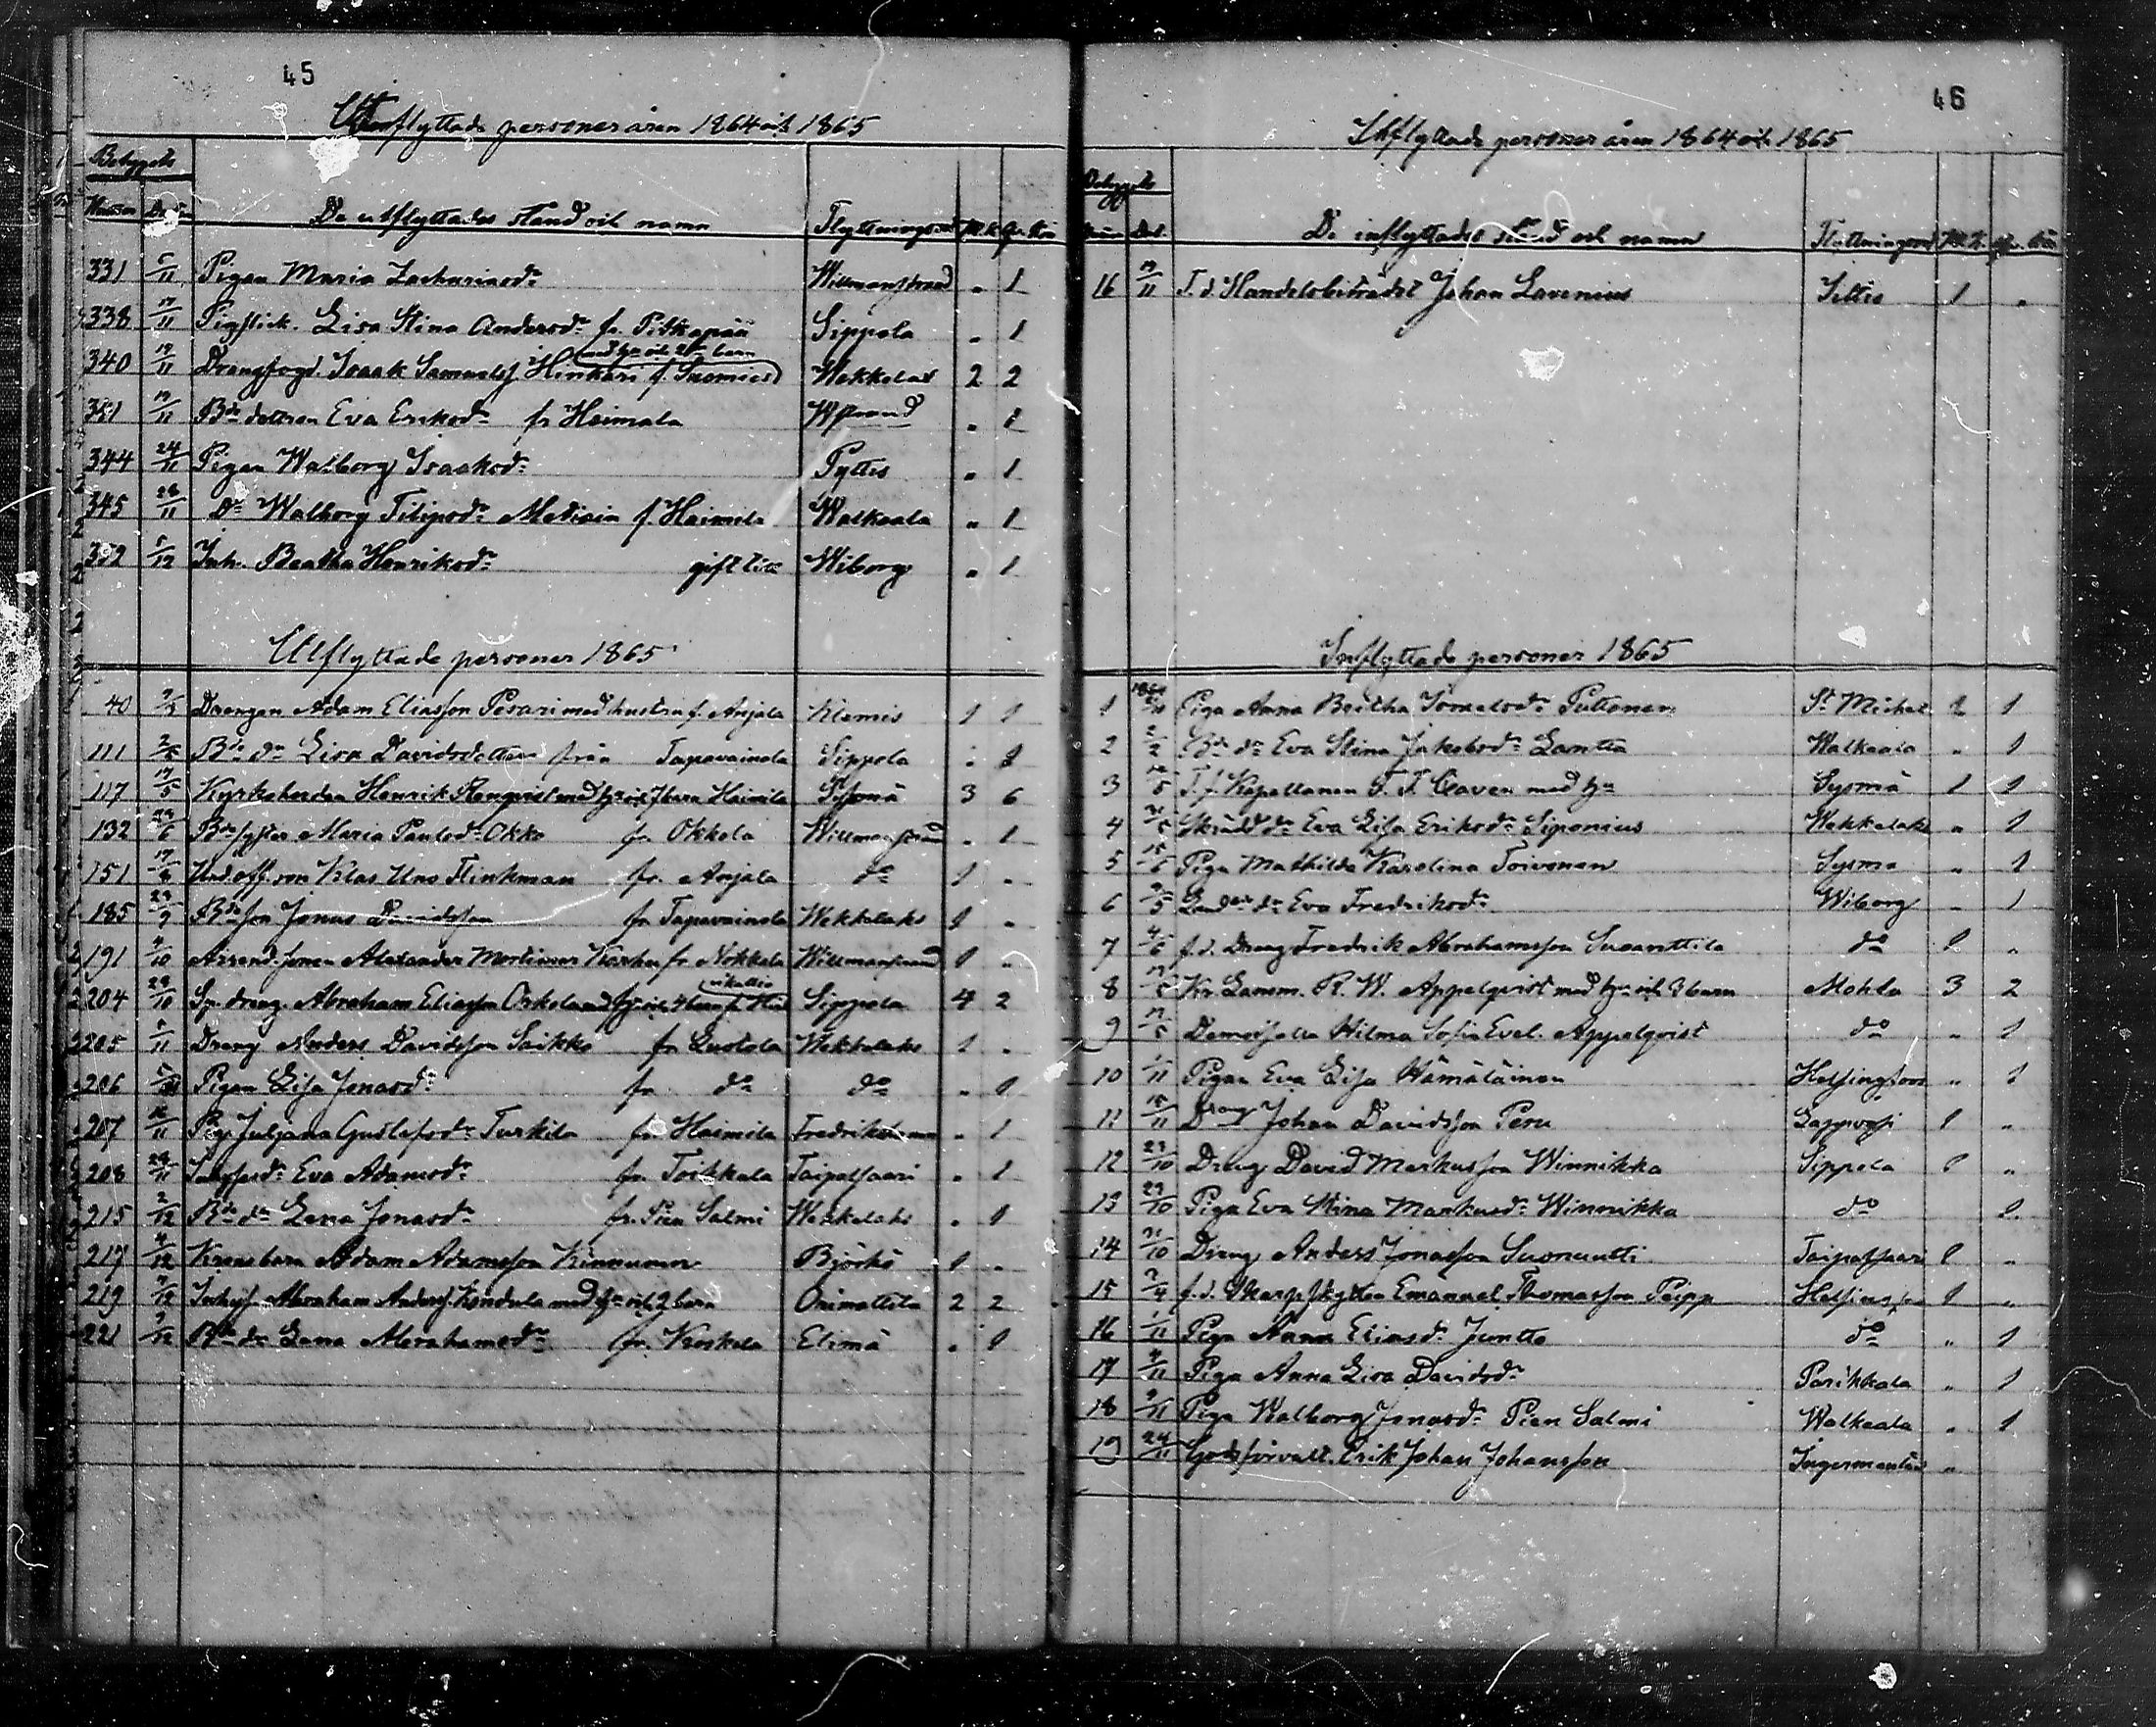 45
Utflyttade personer åren 1864 och 1865
Betygets
De utflyttades stånd och namn Flyttningsort M.k. Qv.kön
331 5/11 Pigan Maria Zachariasdr Willmanstrand " 1
338 17/11 Lisa Stina Andersdr fr. Pitkäpää Sippola " 1
med hu och 2 barn
340 19/11 Drangfogd. Isaak Samuelss Hinkari f. Wekkelax 2 2
19/11 Bde dottren Eva Eriksdr fr Heimala Wstrand " 1
344 24/11 Pigan Walborg Isaksdr Pyttis " 1
345 28/11 Do Walborg Filipsdr f. Haimila Walkeala " 1
352 5/12 Inh. Beatha Henriksdr gift till Wiborg " 1
Utflyttade personer 1865
40 Drengen Adam Eliasson Perari med hustru f. Anjala Klemis 1 1
111 Bde dr Lisa Davidsdotter från Tapavainola Sippola " 1
117 17/5 Kyrkoherden Henrik Renqvist med hu och 7 barn Haimila 3 6
132 Bde syster Maria Paulsdr Okko fr. Okkola Willmanstrand " 1
151 Und.off. son Klas Uno Flinkman fr. Anjala do 1 "
185 29/9 Bde son Jonas Davidsson fr Tapavainola Wekkelaks 1 "
191 4/10 Arrend. sonen Alexander Mortimer Karhu fr Nokkala Willmanstrand 1 "
204 29/10 Sp. dreng. Abraham Eliasson Orkola med hu och 4 barn f. Sippola 4 2
205 5/11 Dreng Anders Davidsson Saikko fr Kustola Wekkelaks 1 "
206 Pigan Lisa Jonasdr fr do do " 1
207 16/11 Pig. Juljana Gustafsdr Turkila fr Haimila Fredrikshamn " 1
208 28/11 Eva Adamsdr fr. Toikkala Taipalsaari " 1
215 2/12 Bde dr Lena Jonasdr fr. Pien Salmi Wekkelaks " 1
217 4/12 Adam Adamsson Kinnunen Björkö 1 "
219 Inhys. Abraham Anderss. Kondula med hu och 2 barn Orimattila 2 2
221 9/12 Bde dr Lena Abrahamsdr fr. Koskela Elimä " 1
46
Inflyttade personer åren 1864 och 1865
Betygets
De inflyttades stånd och namn Flyttningsort M.k. Qv. kön
16 19/11 F.d. Handelsbiträdet Johan Lavenius Iittis 1 "
Inflyttade personer 1865
1 Piga Anna Beatha Puttonen St Michel 1
2 Bde dr Eva Stina Jakobsdr Lantta Walkeala " 1
3 T.f. Kapellanen F. F. Caven med hu Sysmä 1 1
4 Skrädd. dr Eva Lisa Eriksdr Siponius Wekkelaks " 1
5 Piga Mathilda Karolina Toivonen Sysmä " 1
6 dr Eva Fredriksdr Wiborg " 1
7 f.d. Dreng Fredrik Abrahamsson Susanttila do 1 "
8 Kr. Länsm. R. W. Appelqvist med hu och 3 barn Mohla 3 2
9 17/5 Demoiselle Hilma Sofia Evel. Appelqvist do " 1
10 1/11 Pigan Eva Lisa Hämäläinen Helsingfors " 1
11 Dreng Johan Davidsson Peru Lappvesi 1 "
12 29/10 Dreng David Markusson Winnikka Sippola 1 "
13 29/10 Piga Eva Stina Markusdr Winnikka do 1
14 21/10 Dreng Anders Jonasson Suonuutti Taipalsaari 1 "
15 f.d. Skarpskytten Emanuel Thomasson Peipp Helsingfors 1 "
16 1/11 Piga Anna Eliasdr Juntto do " 1
17 Piga Anna Lisa Davidsdr Parikkala " 1
18 9/11 Piga Walborg Jonasdr Pien Salmi Walkeala " 1
19 24/11 Godsförvalt. Erik Johan Johansson Ingermanland "